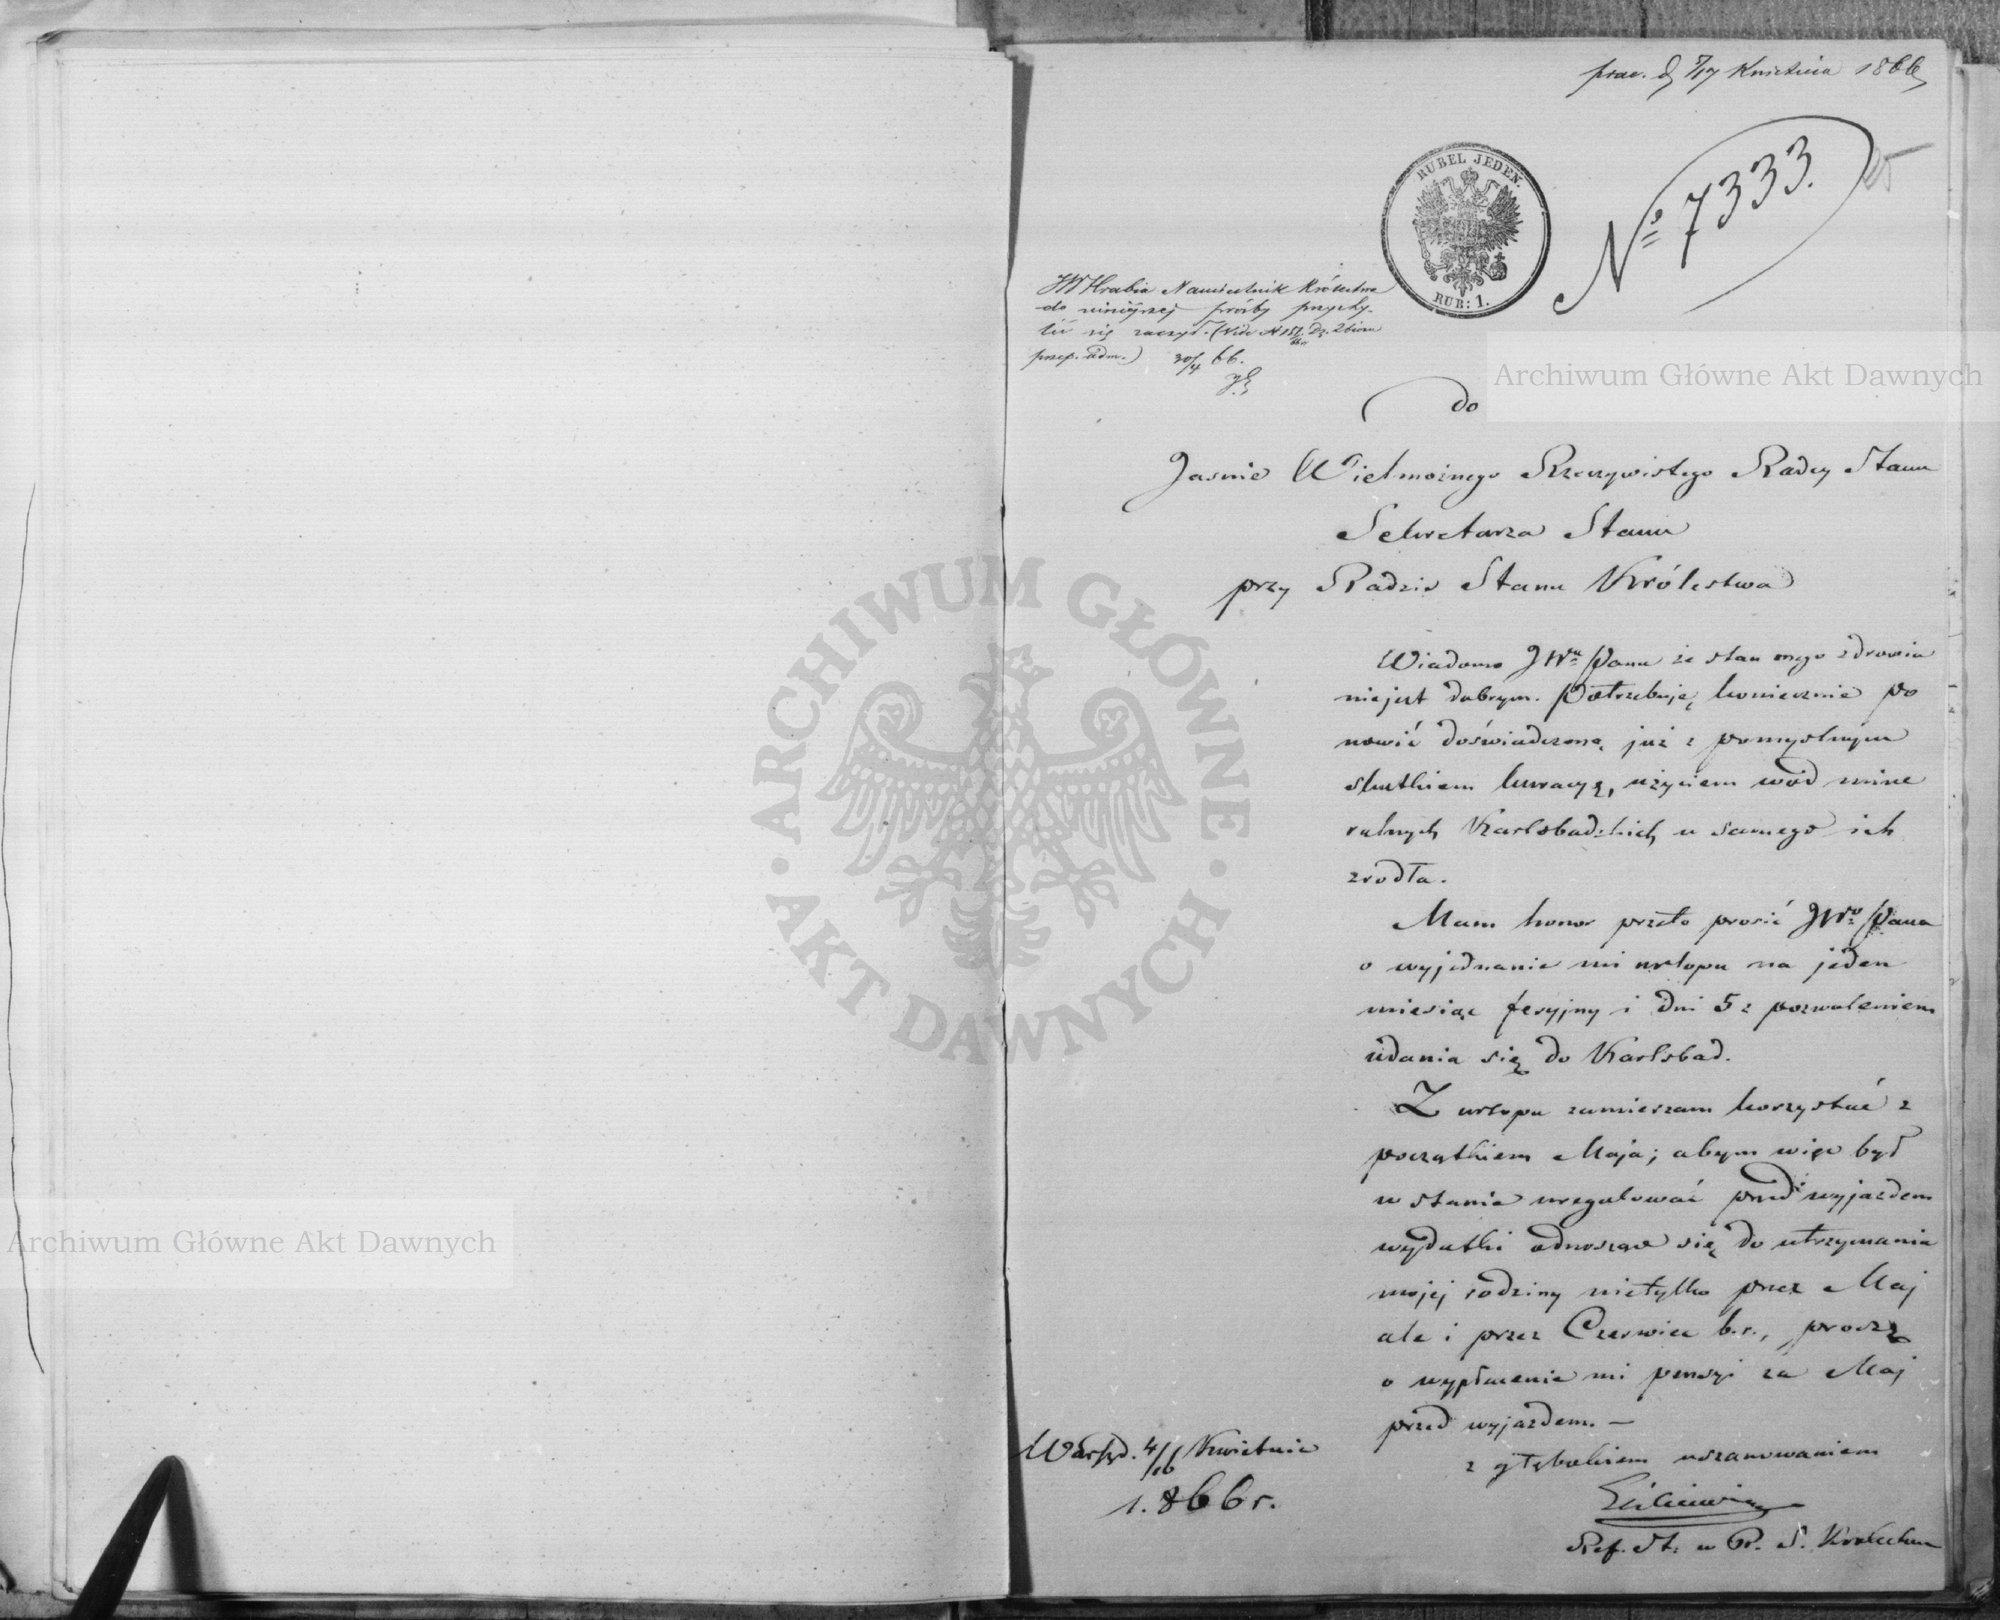 prac. d. 5/17 Kwietnia 1866
RUBEL JEDEN.
RUB: 1.
No 7333.
25
JW Hrabia Namiestnik Królestwa
do niniejszej prośby przychy-
lić się raczył. (Vide N 151/ Dz. Zbioru
przep. adm.) 20/4 66.
do
Jasnie Wielmożnego Rzeczywistego Radcy Stanu
Sekretarza Stanu
przy Radzie Stanu Królestwa
Wiadomo JWu Panu że stan mego zdrowia
niejest dobrym. Potrzebuję koniecznie po
nowić doświadczoną już z pomyślnym
skutkiem kuracyą, użyciem wód mine
ralnych Karlsbadzkich u samego ich
zrodła.
Mam honor przeto prosić JWo Pana
o wyjednanie mi urlopu na jeden
miesiąc feryjny i dni 5 z pozwoleniem
udania się do Karlsbad.
Z urlopu zamierzam korzystać z
początkiem Maja; abym więc był
w stanie uregulować przed wyjazdem
wydatki odnoszące się do utrzymania
mojej rodziny nietylko przez Maj
ale i przez Czerwiec b.r., proszę
o wypłacenie mi pensyi za Maj
przed wyjazdem. —
z głębokiem uszanowaniem
Ref. St. w R. S. Królestwa
Warsz. d. 4/16 Kwietnia
1.866 r.
Archiwum Główne Akt Dawnych
Archiwum Główne Akt Dawnych
ARCHIWUM GŁÓWNE · AKT DAWNYCH ·